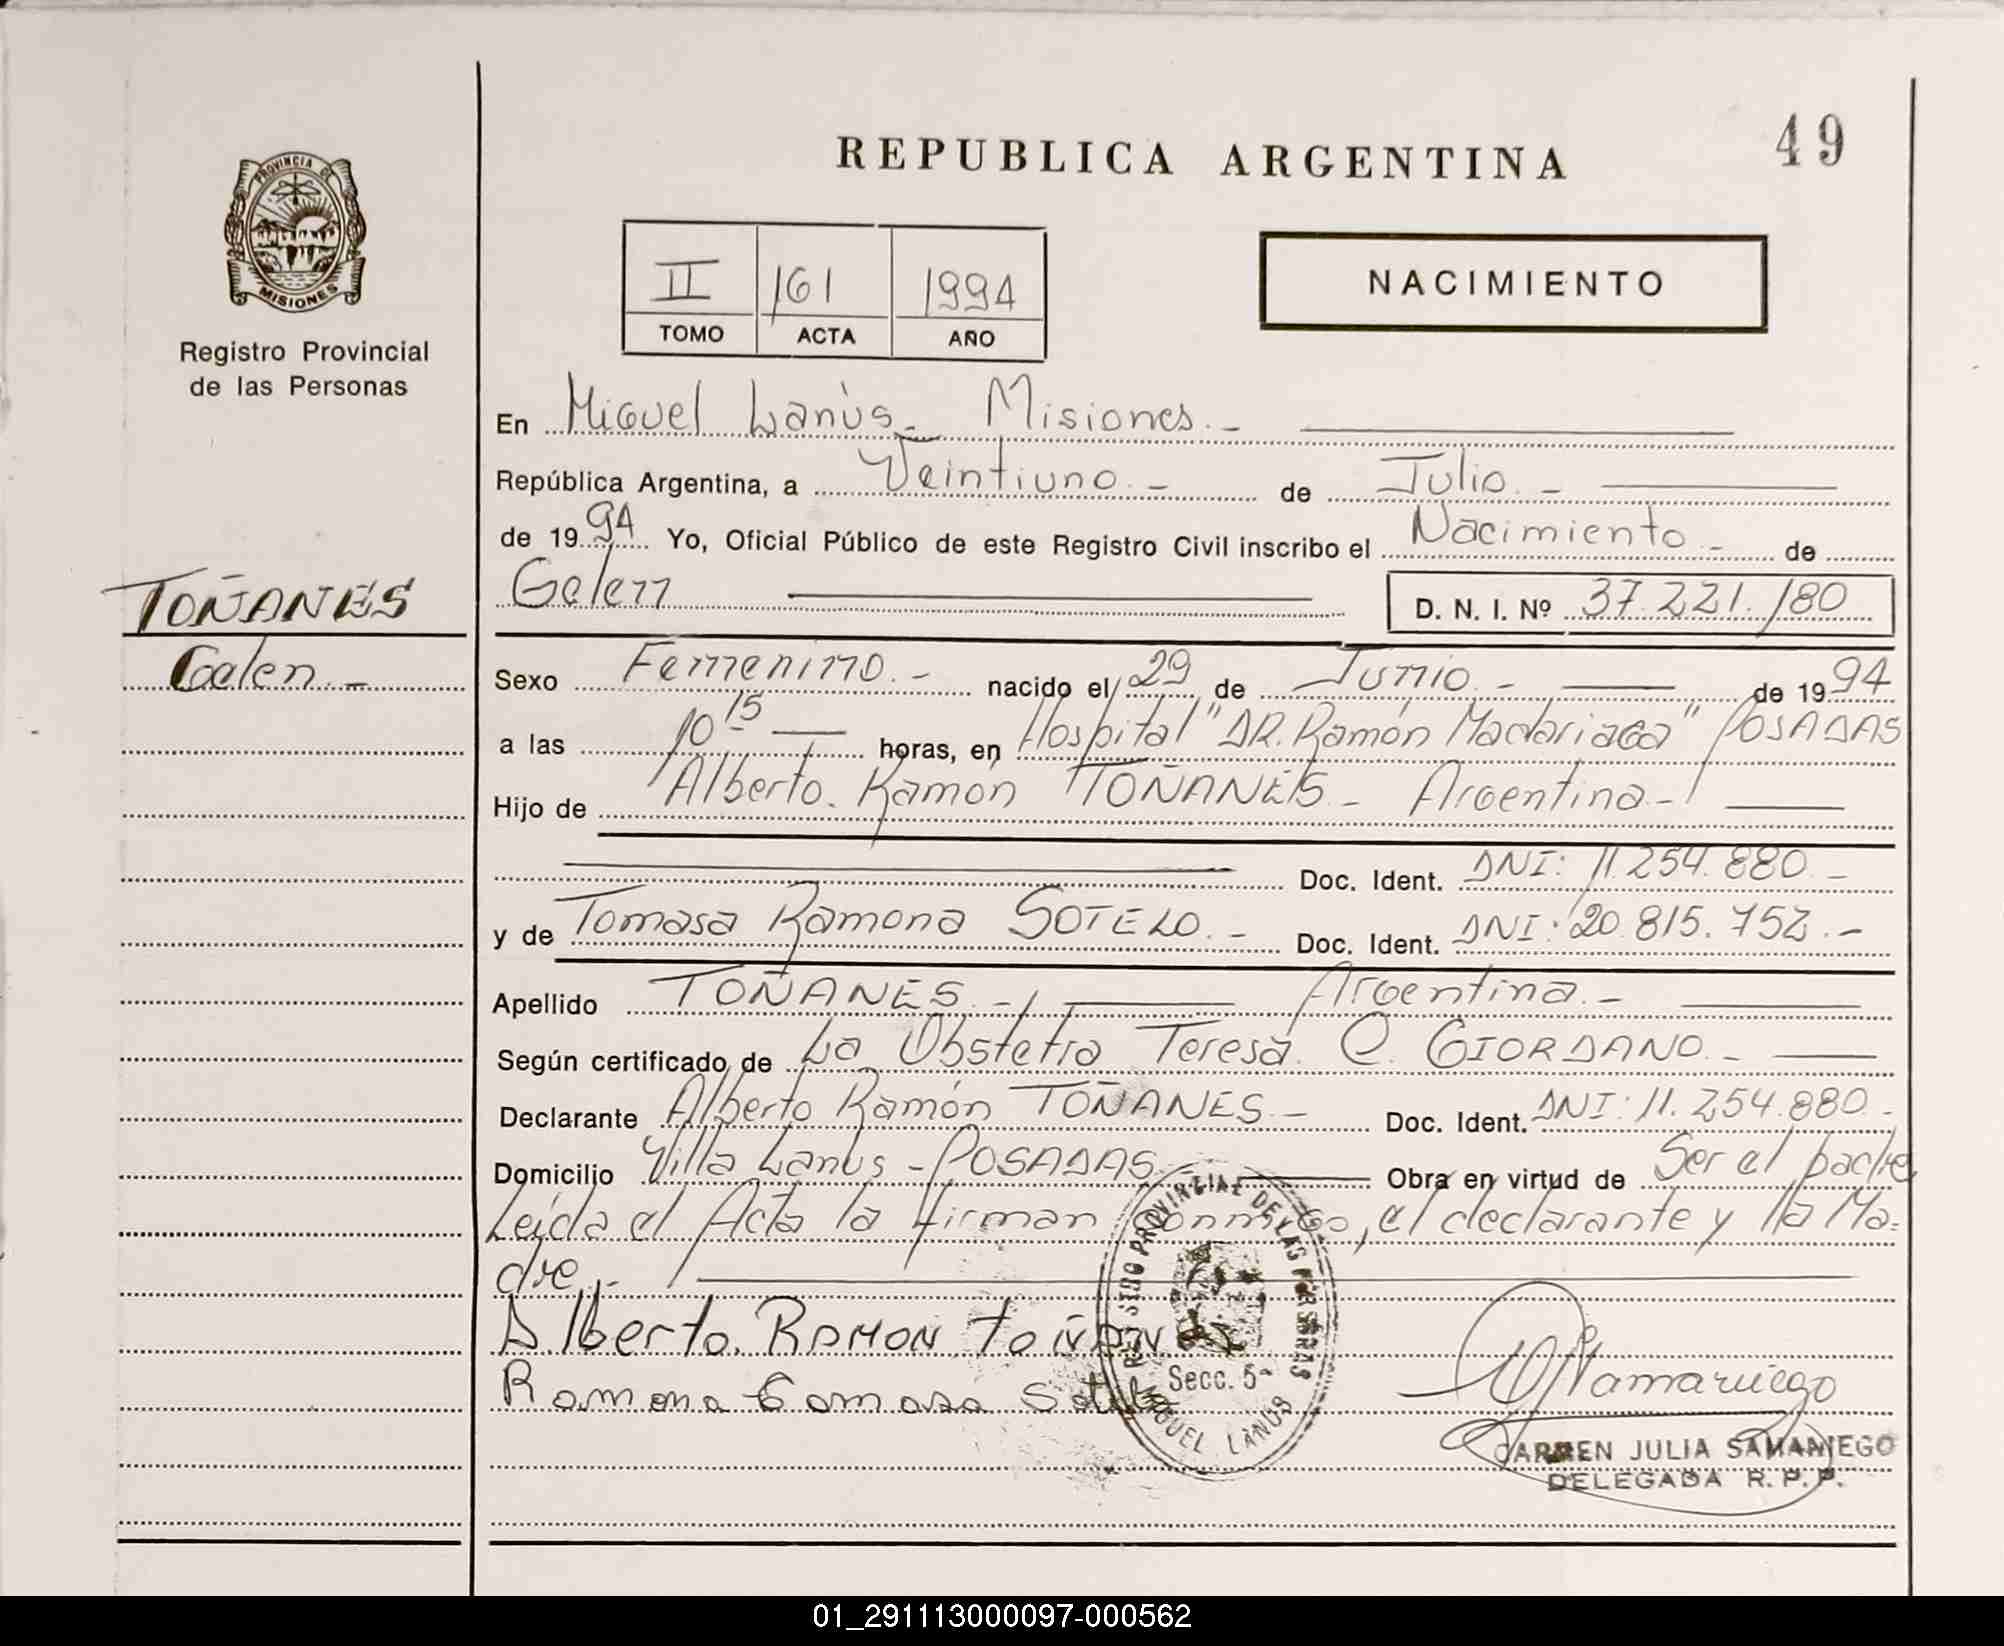 49
REPUBLICA ARGENTINA
PROVINCIA DE
MISIONES
Registro Provincial
de las Personas
II 161 1994
TOMO ACTA AÑO
NACIMIENTO
En Miguel Lanús - Misiones. -
República Argentina, a Veintiuno. - de Julio. -
de 1994 Yo, Oficial Público de este Registro Civil inscribo el Nacimiento - de
Gelen D. N. I. Nº 37.221.180
TOÑANES
Gelen. -
Sexo Femenino. - nacido el 29 de Junio. - de 1994
a las 10 15 horas, en Hospital "DR. Ramón Madariaga" POSADAS
Hijo de Alberto. Ramón TOÑANES - Argentina -
Doc. Ident. DNI: 11.254.880 -
y de Tomasa Ramona SOTELO. - Doc. Ident. DNI: 20.815.752. -
Apellido TOÑANES. - Argentina. -
Según certificado de La Obstetra Teresa. C. GIORDANO. -
Declarante Alberto Ramón TOÑANES - Doc. Ident. DNI: 11.254.880 -
Domicilio Villa Lanús - POSADAS - Obra en virtud de Ser el padre
Leída el Acta la firman conmigo, el declarante y la Ma=
dre. -
Alberto. RAMON TOÑANES
Ramona Tomasa Sotelo
REGISTRO PROVINCIAL DE LAS PERSONAS
Secc. 5ª
MIGUEL LANÚS
CARMEN JULIA SAMANIEGO
DELEGADA R. P. P.
01_291113000097-000562